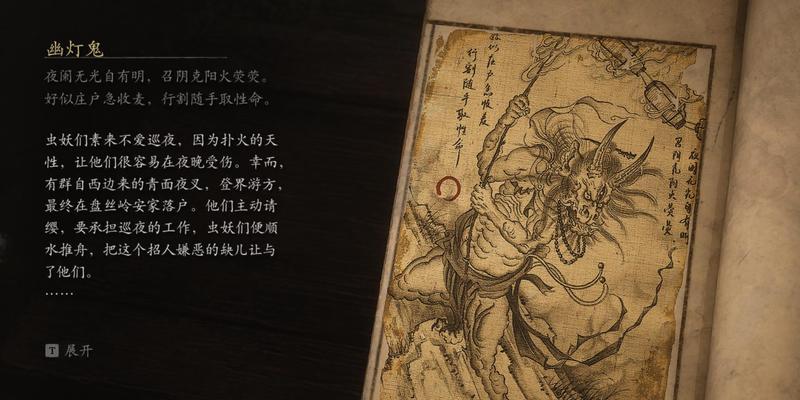 幽灯鬼
夜阑无光自有明，召阴克阳火荧荧。
好似庄户急收麦，行割随手取性命。
虫妖们素来不爱巡夜，因为扑火的天
性，让他们很容易在夜晚受伤。幸而，
有群自西边来的青面夜叉，登界游方，
最终在盘丝岭安家落户。他们主动请
缨，要承担巡夜的工作，虫妖们便顺
水推舟，把这个招人嫌恶的缺儿让与
了他们。
……
T 展开
夜阑无光自有明
召阴克阳火荧荧
好似庄户急收麦
行割随手取性命